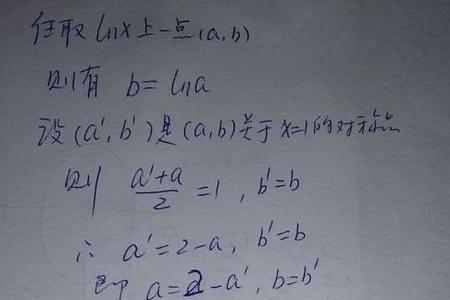 任取lnx上一点(a,b)
则有 b=lna
设(a',b')是(a,b)关于x=1的对称点
则 (a'+a)/2=1, b'=b
∴ a'=2-a, b'=b
即 a=2-a', b=b'